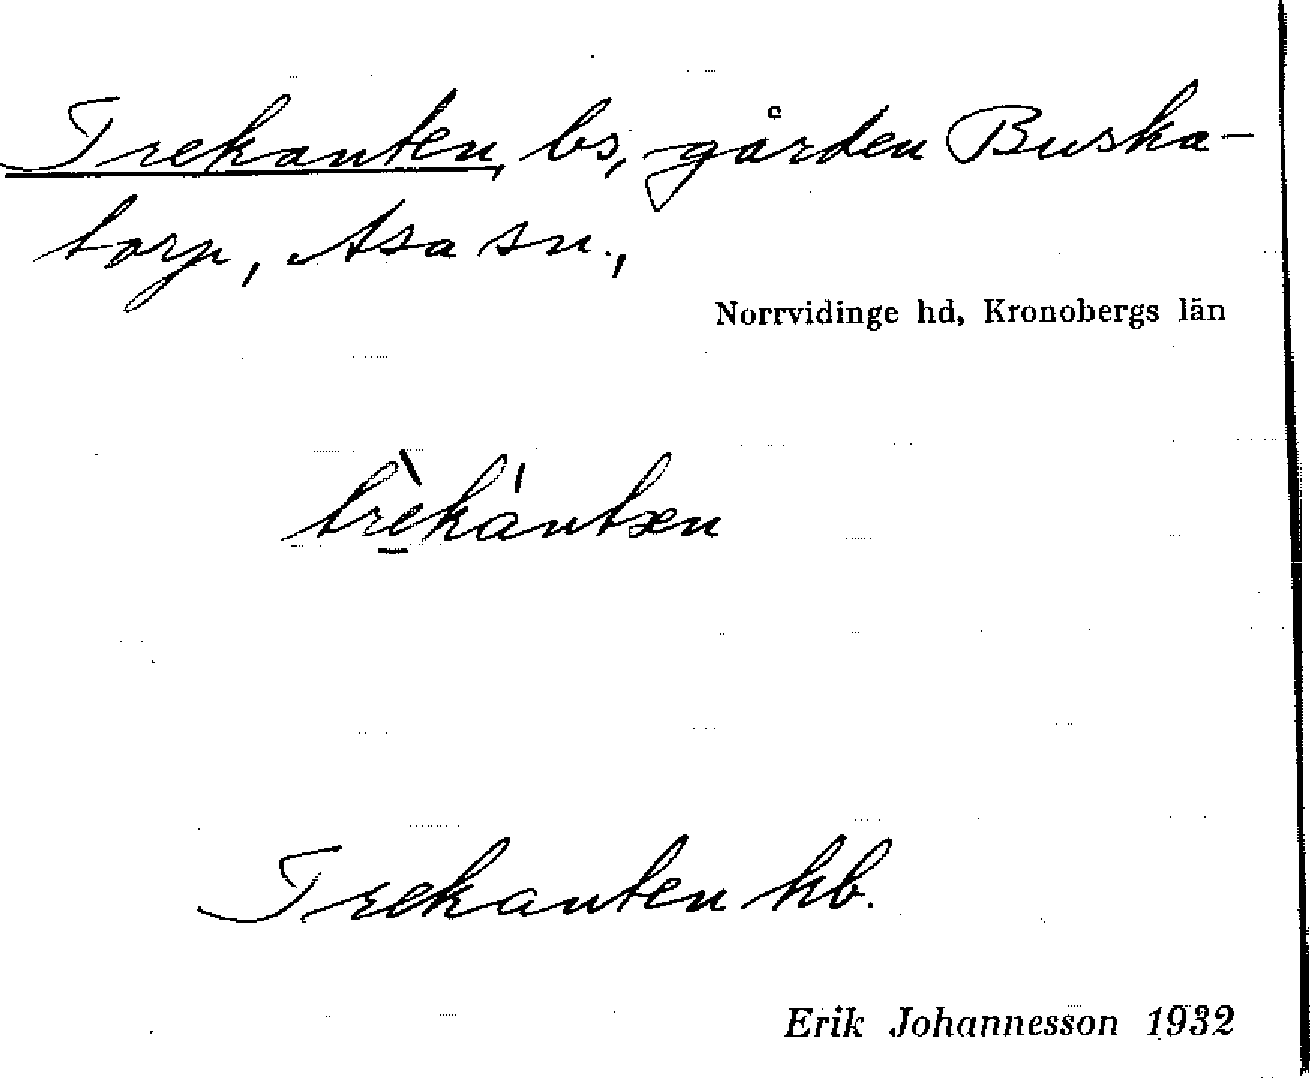 Trekanten, bs, gården Buska-
torp, Asa sn.,
Norrvidinge hd, Kronobergs län
trè̱ká́ntæn
Trekanten hb.
Erik Johannesson 1932